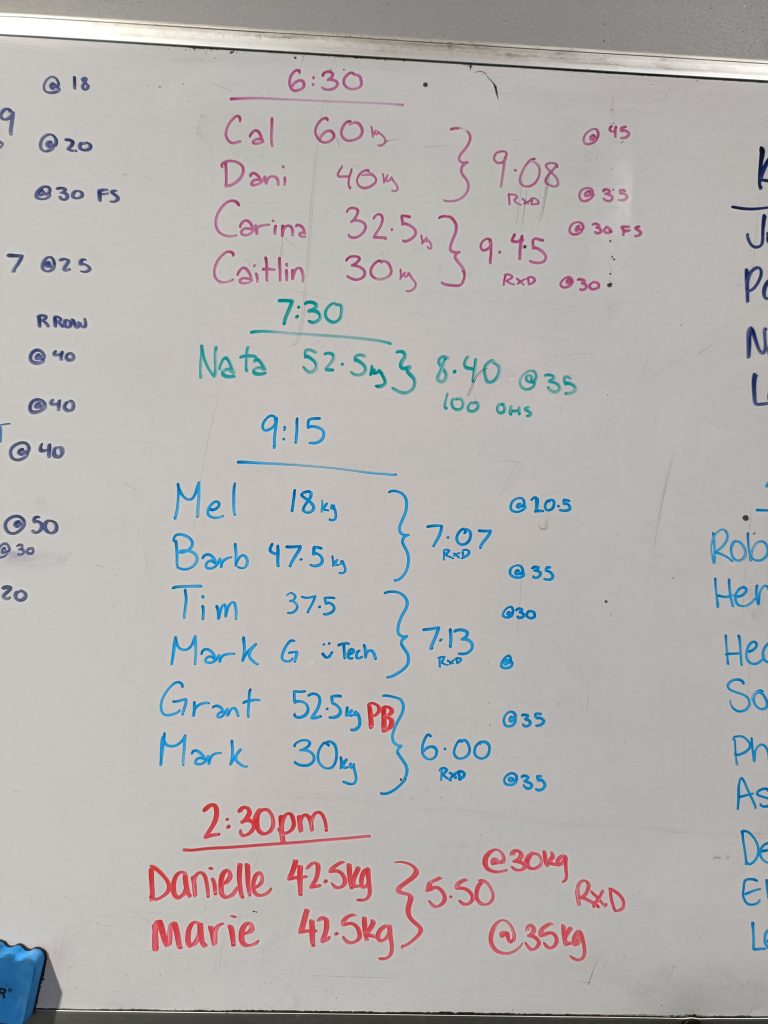 @ 18
9
@ 20
@30 FS
7 @25
R ROW
@ 40
@40
@ 40
@ 50
@ 30
20
6:30
Cal 60kg
Dani 40kg
} 9.08 RxD
@ 45
@ 35
Carina 32.5kg
Caitlin 30kg
} 9.45 RxD
@ 30 FS
@30
7:30
Nata 52.5kg } 8.40 @ 35
100 OHS
9:15
Mel 18kg
Barb 47.5kg
} 7.07 RxD
@20.5
@ 35
Tim 37.5
Mark G Tech
} 7.13 RxD
@30
@
Grant 52.5kg PB
Mark 30kg
} 6.00 RxD
@35
@35
2:30pm
Danielle 42.5kg
Marie 42.5kg
} 5.50 RxD
@30kg
@35kg
Rob
Her
So
Ph
As
De